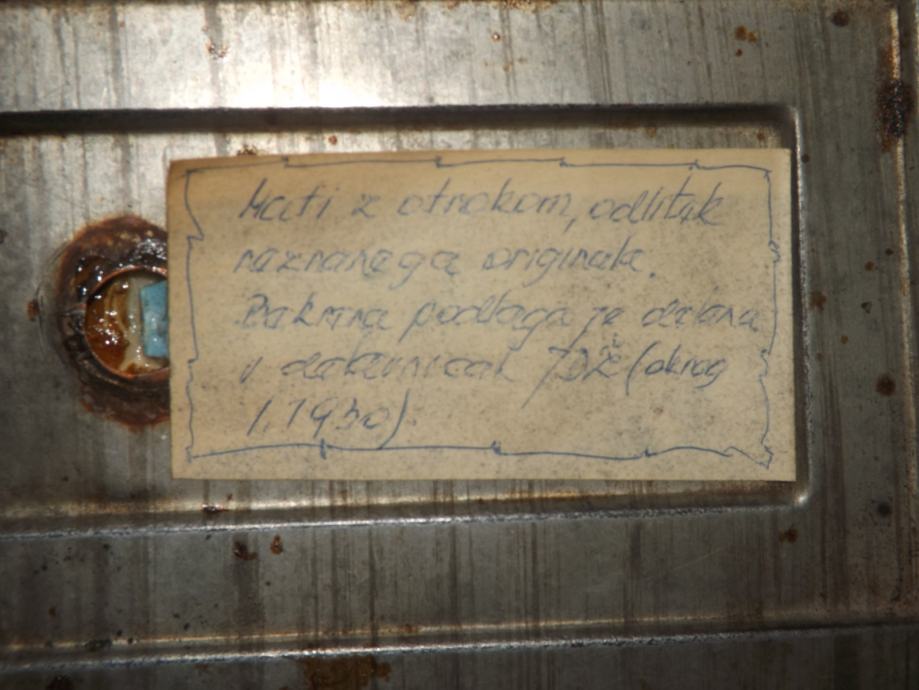 Mati z otrokom, odlitek
neznanega originala.
Bakrena podlaga je delana
v delavnicah TDŽ (okrog
l. 1930)